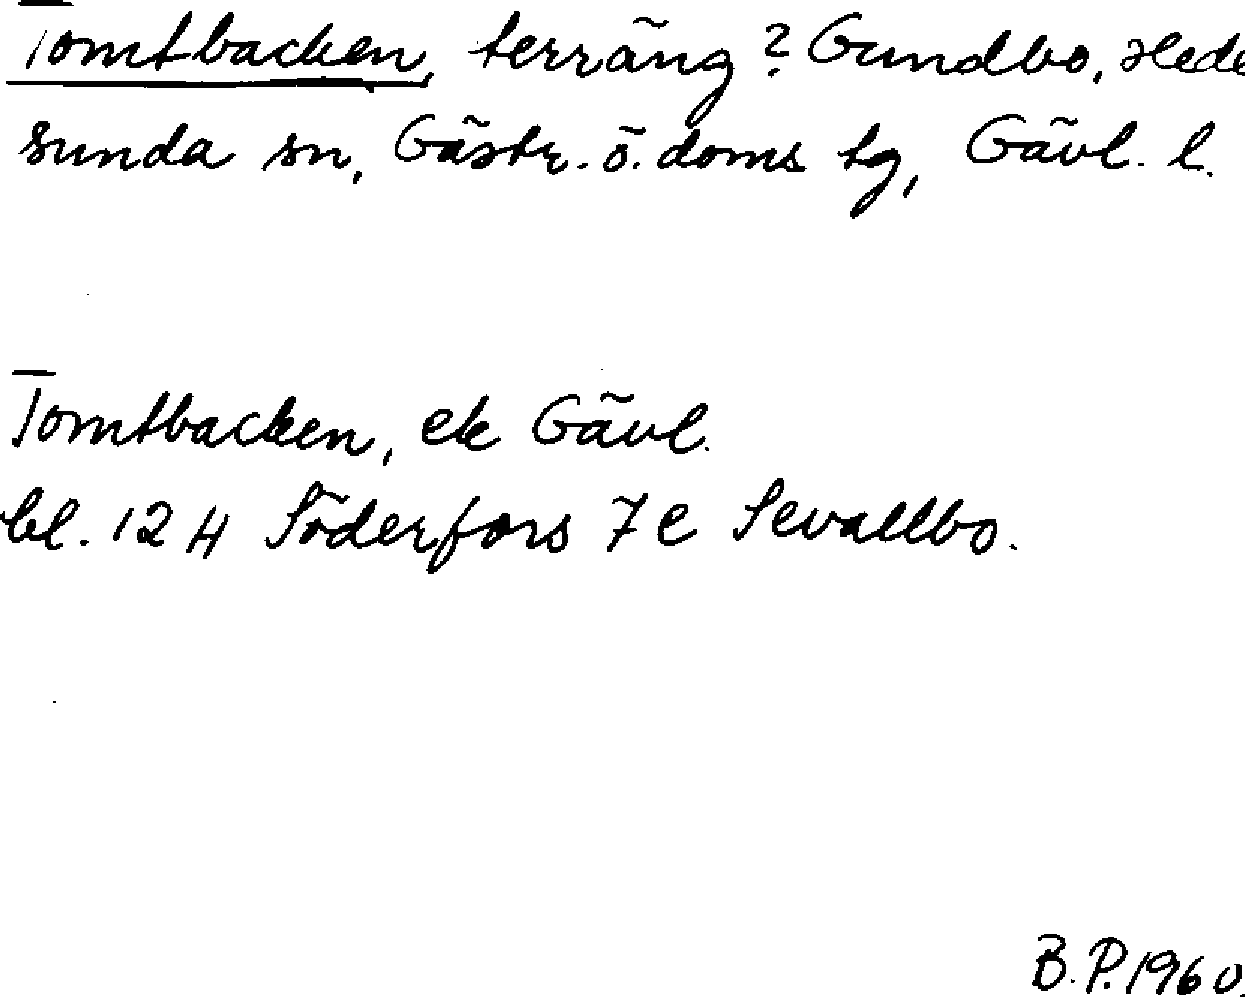 Tomtbacken, terräng? Gundbo, Hede
sunda sn, Gästr. ö. doms tg, Gävl. l.
Tomtbacken, ek Gävl.
bl. 12 H Söderfors 7 e Sevallbo.
B.P. 1960.